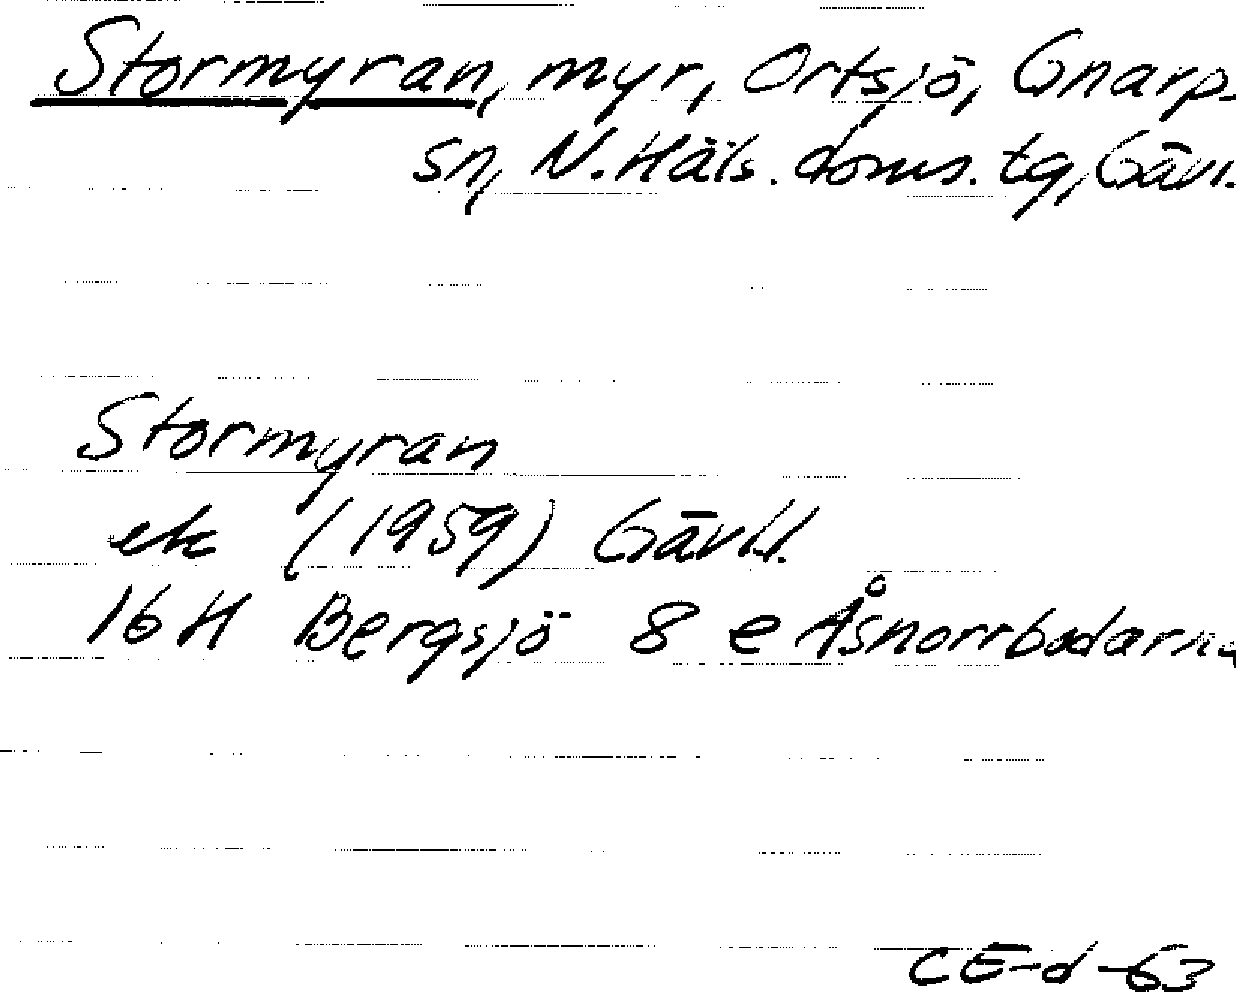 Stormyran, myr, Ortsjö, Gnarps
sn, N. Häls. doms. tg, Gävl.
Stormyran
ek (1959) Gävl.l.
16 H Bergsjö 8 e Åsnorrbodarna
CE-d -63